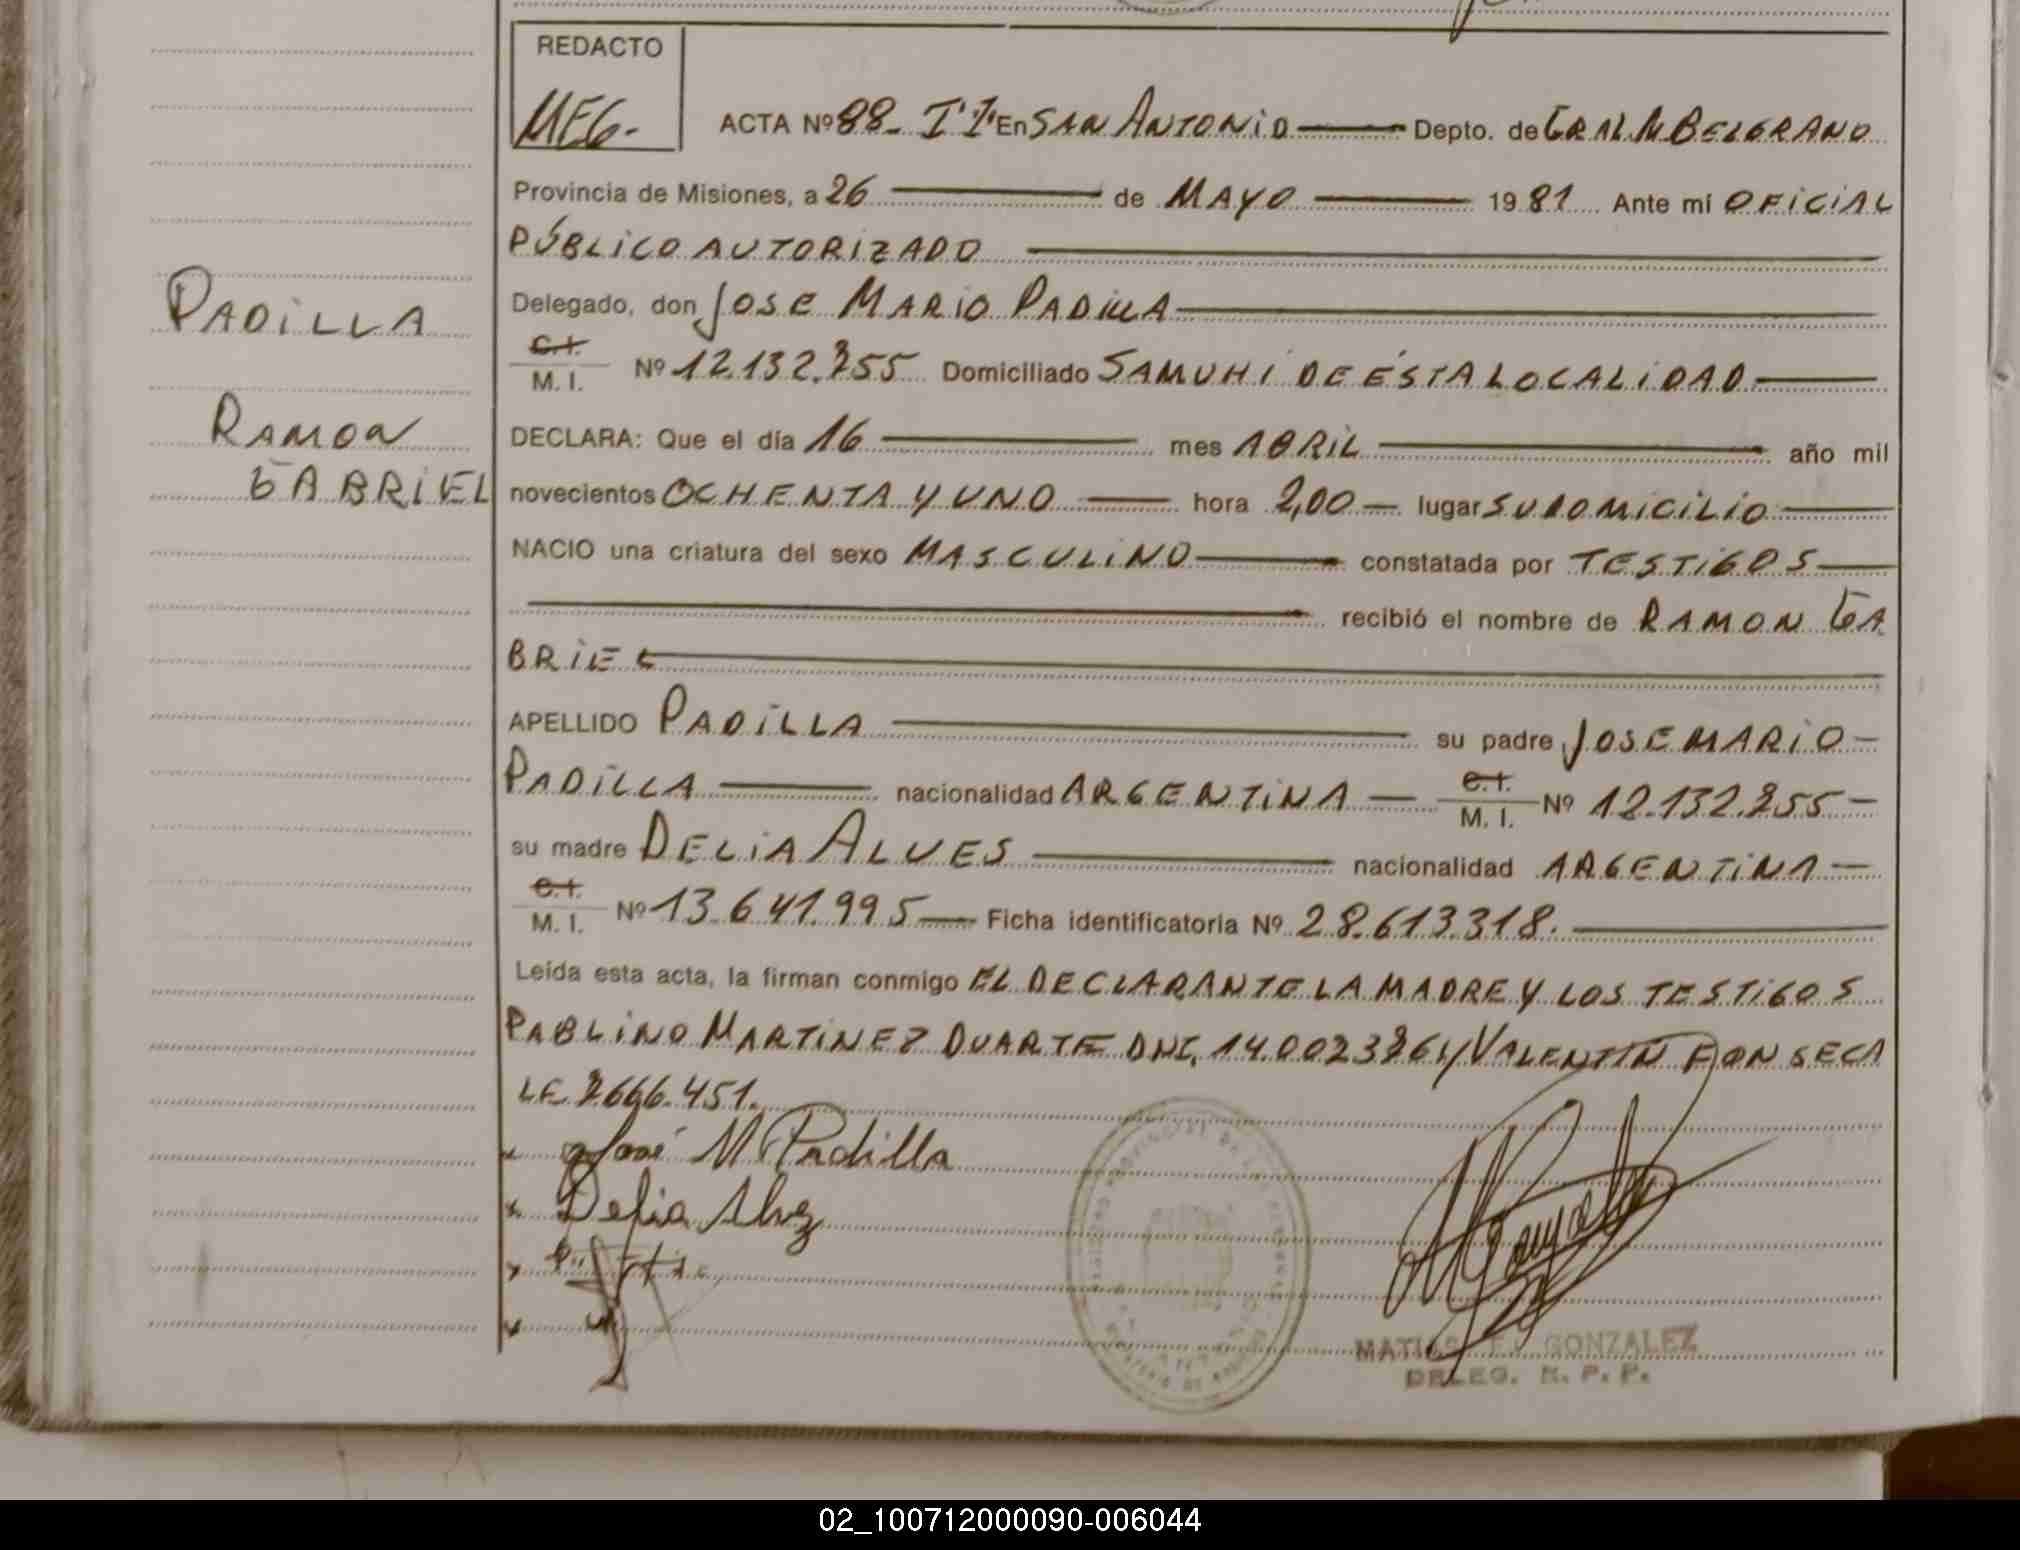 REDACTO
MEG.
ACTA Nº 88- T'I' En SAN ANTONIO Depto. de GRAL M. BELGRANO
Provincia de Misiones, a 26 de MAYO 1981 Ante mí OFICIAL
PÚBLICO AUTORIZADO
Delegado, don JOSE MARIO PADILLA
PADILLA
C.I.
M. I. Nº 12.132.255 Domiciliado SAMUHI DE ÉSTA LOCALIDAD
RAMON
GABRIEL
DECLARA: Que el día 16 mes ABRIL año mil
novecientos OCHENTA Y UNO hora 2,00 lugar SU DOMICILIO
NACIO una criatura del sexo MASCULINO constatada por TESTIGOS
recibió el nombre de RAMON GA
BRIEL
APELLIDO PADILLA su padre JOSE MARIO
PADILLA nacionalidad ARGENTINA C.I. M. I. Nº 12.132.255
su madre DELIA ALVES nacionalidad ARGENTINA
C.I.
M. I. Nº 13.641.995 Ficha identificatoria Nº 28.613.318.
Leída esta acta, la firman conmigo EL DECLARANTE LA MADRE Y LOS TESTIGOS
PABLINO MARTINEZ DUARTE DNI. Y VALENTIN FONSECA
LE 2666.451.
José M Padilla
Delia Alvez
MATIAS E. GONZALEZ
DELEG. R. P. P.
02_100712000090-006044